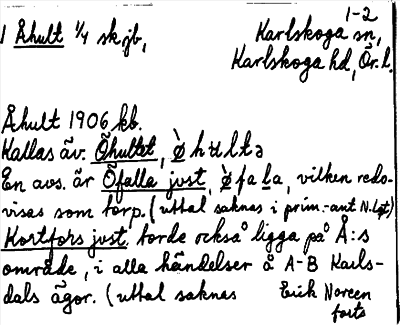 1-2
1 Åhult 1/4 sk.jb,
Karlskoga sn,
Karlskoga hd, Ör. l.
Åhult 1906 kb.
Kallas äv. Öhultet, ø̀hʉltə
En avs. är Öfalla just, ø̀fala, vilken reds-
visas som torp. (uttal saknas i prim.-ant N.Lgt)
Kortfors just. torde också ligga på Å:s
område, i alla händelser å A-B Karls-
dals ägor. (uttal saknas
Erik Noreen
forts